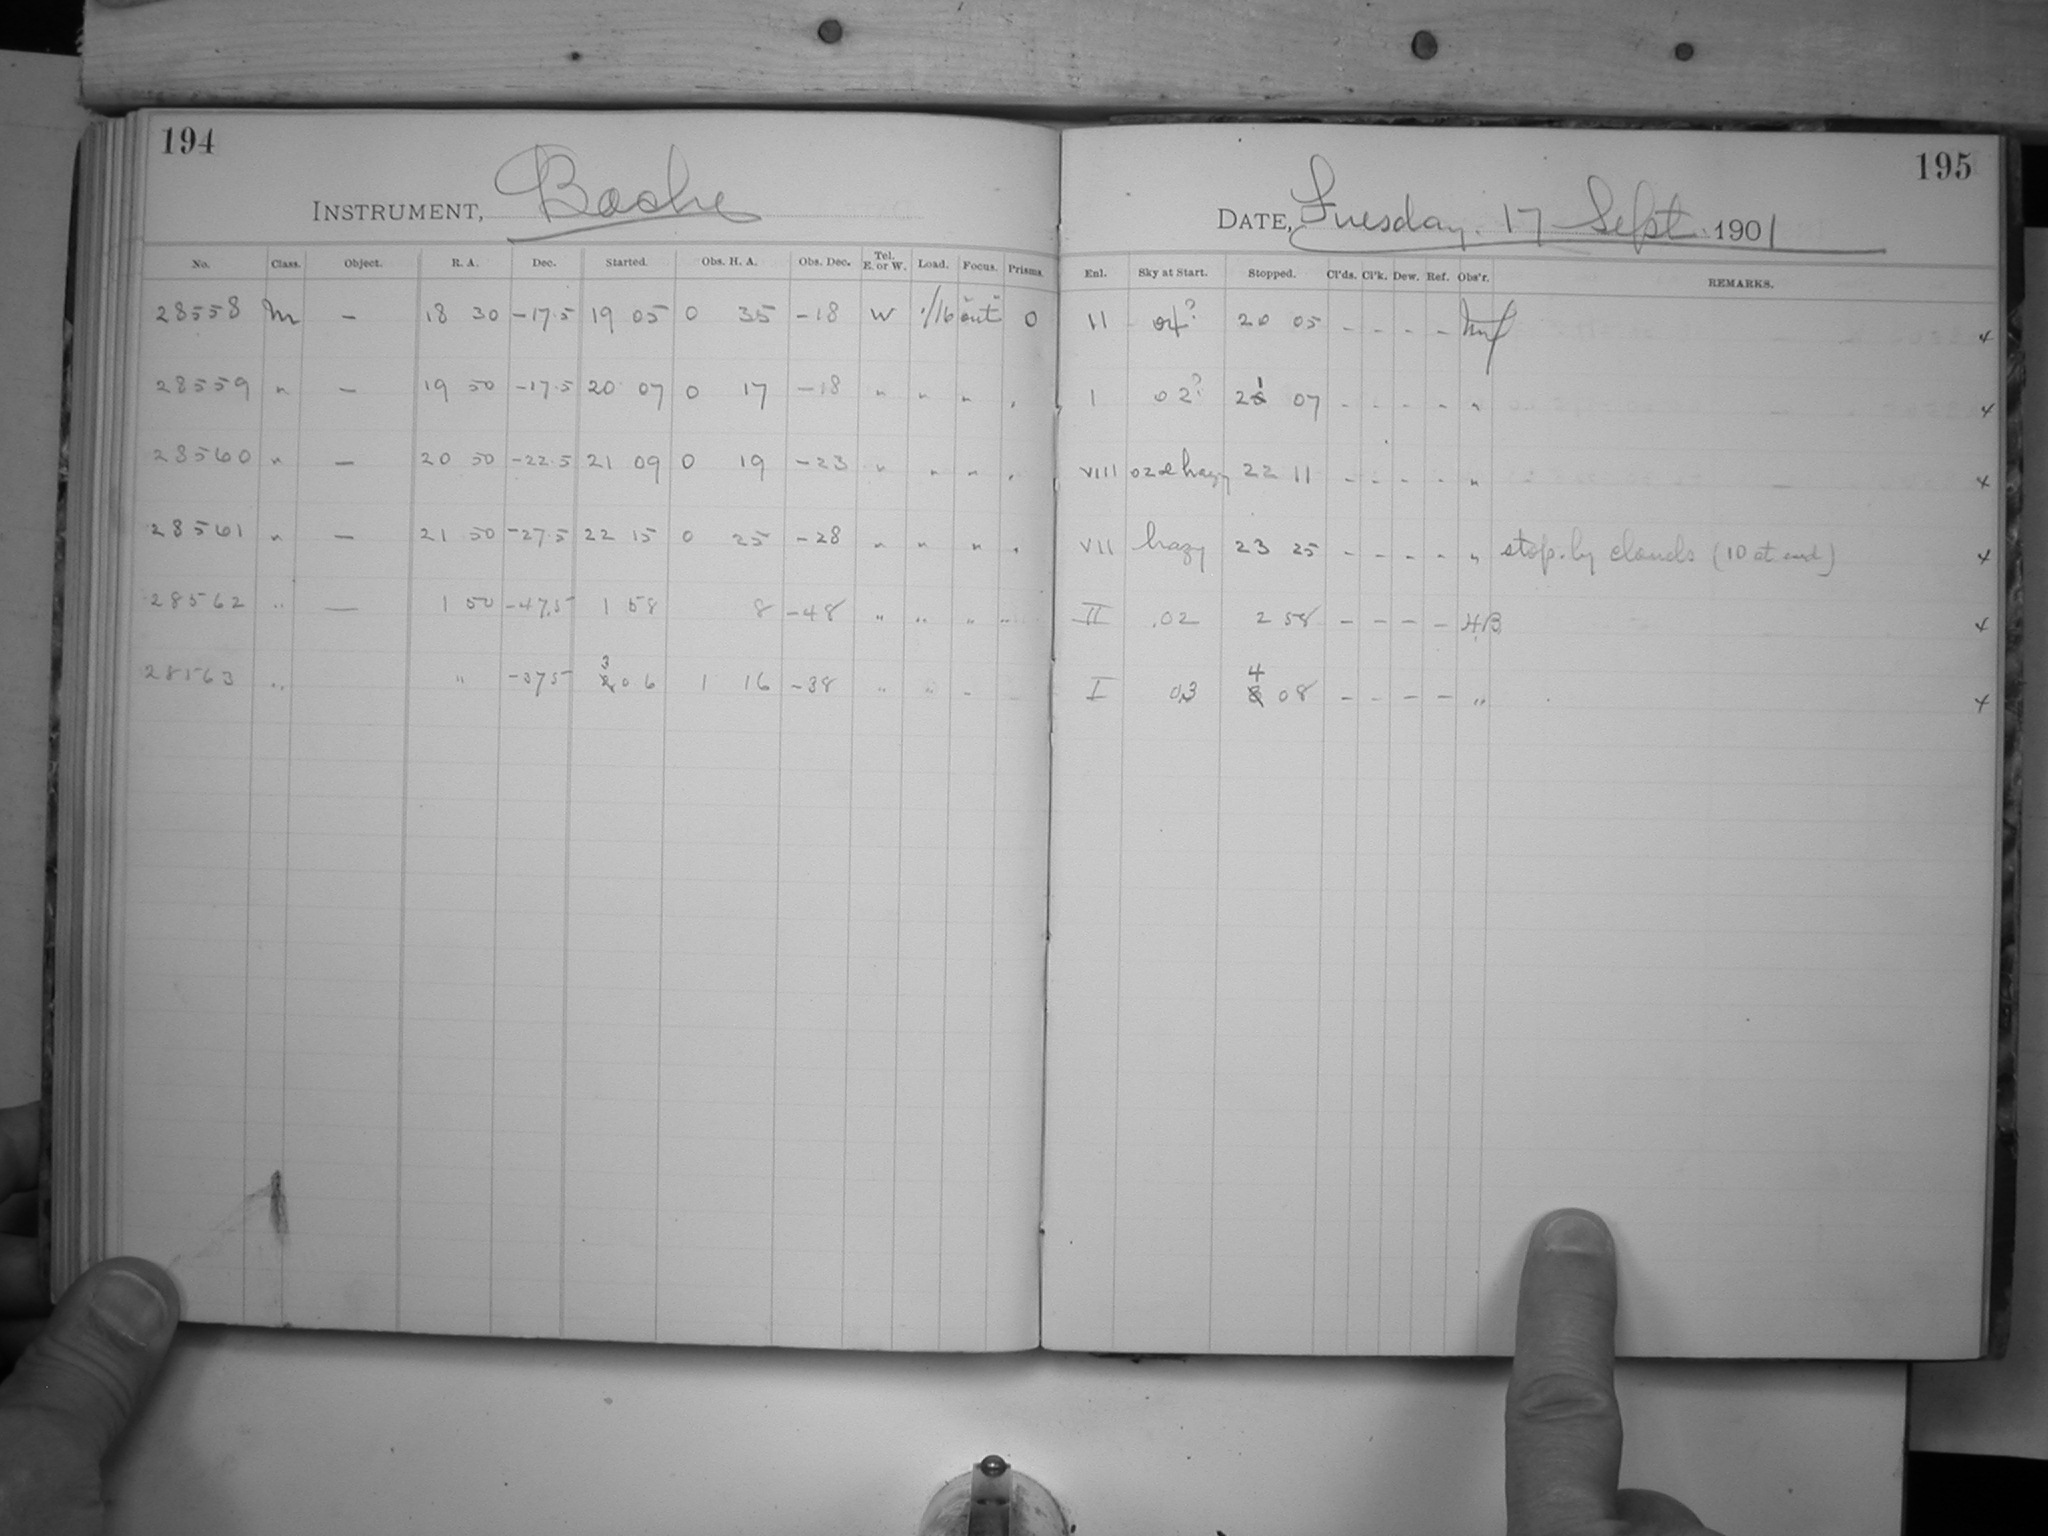 194
INSTRUMENT, Bache
No. Class. Object. R. A. Dec. Started. Obs. H. A. Obs. Dec. Tel. E. or W. Load. Focus. Prisms.
28558 m — 18 30 -17.5 19 05 0 35 -18 W 1/16 out 0
28559 " — 19 50 -17.5 20 07 0 17 -18 " " " "
28560 " — 20 50 -22.5 21 09 0 19 -23 " " " "
28561 " — 21 50 -27.5 22 15 0 25 -28 " " " "
28562 " — 1 50 -47.5 1 58 8 -48 " " " "
28563 " " -37.5 3 06 1 16 -38 " " "
195
DATE, Tuesday. 17 Sept. 1901
Enl. Sky at Start. Stopped. Cl'ds. Cl'k. Dew. Ref. Obs'r. REMARKS.
II 04? 20 05 - - - -
I 02? 21 07 - - - - "
VIII 02 & hazy 22 11 - - - - "
VII hazy 23 25 - - - - " stop. by clouds (10 at end)
II .02 2 58 - - - - HB
I 03 4 08 - - - - "